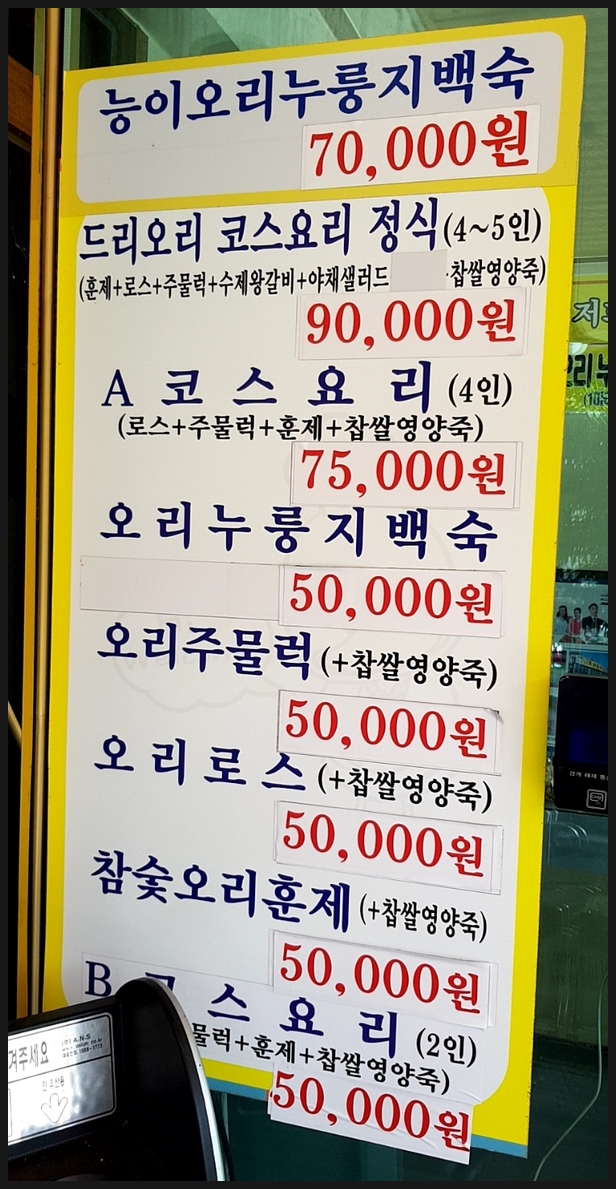 능이오리누룽지백숙
70,000원
드리오리 코스요리 정식(4~5인)
(훈제+로스+주물럭+수제왕갈비+야채샐러드 찹쌀영양죽)
90,000원
A 코스요리 (4인)
(로스+주물럭+훈제+찹쌀영양죽)
75,000원
오리누룽지백숙
50,000원
오리주물럭(+찹쌀영양죽)
50,000원
오리로스 (+찹쌀영양죽)
50,000원
참숯오리훈제(+찹쌀영양죽)
50,000원
B 코스요리 (2인)
물럭+훈제+찹쌀영양죽)
50,000원
겨주세요
(주)A.N.S